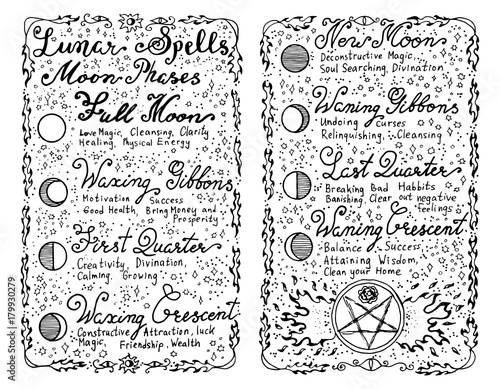 Lunar Spells
Moon Phases
Full Moon
Love Magic, Cleansing, Clarity
Healing, Physical Energy
Waxing Gibbons
Motivation Success
Good Health, Bring Money and
Prosperity
First Quarter
Creativity, Divination,
Calming, Growing
Waxing Crescent
Constructive Attraction, luck
Magic, Friendship, Wealth
New Moon
Deconstructive Magic,
Soul Searching, Divination
Waning Gibbons
Undoing Curses
Relinquishing, Cleansing
Last Quarter
Breaking Bad Habbits
Banishing, Clear out negative
feelings
Waning Crescent
Balance Success
Attaining Wisdom,
Clean your Home
Adobe Stock | #179930279